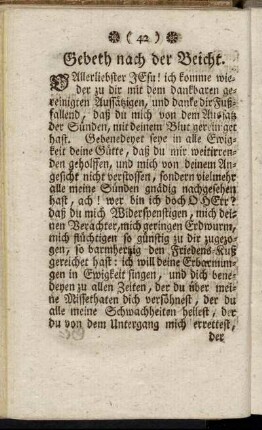 ( 42 )
Gebeth nach der Beicht.
O Allerliebster JEsu! ich komme wie-
der zu dir mit dem dankbaren ge-
reinigten Aussätzigen, und danke dir Fuß-
fallend, daß du mich von dem Aussatz
der Sünden, mit deinem Blut gereiniget
hast. Gebenedeyet seye in alle Ewig-
keit deine Güte, daß du mir weitirren-
den geholffen, und mich von deinem An-
gesicht nicht verstossen, sondern vielmehr
alle meine Sünden gnädig nachgesehen
hast, ach! wer bin ich doch O HErr?
daß du mich Widerspenstigen, mich dei-
nen Verächter, mich geringen Erdwurm,
mich flüchtigen so günstig zu dir zugezo-
gen, so barmherzig den Friedens-Kuß
gereichet hast: ich will deine Erbarmun-
gen in Ewigkeit singen, und dich bene-
deyen zu allen Zeiten, der du über mei-
ne Missethaten dich versöhnest, der du
alle meine Schwachheiten heilest, der
du von dem Untergang mich errettest,
der